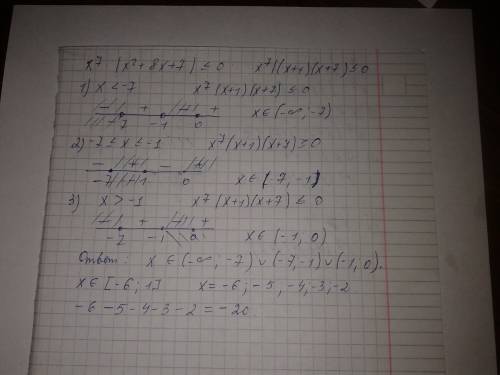 x⁷ |x²+8x+7| ≤ 0 x⁷|(x+1)(x+7)| ≤ 0
1) x < -7 x⁷(x+1)(x+7) ≤ 0
- + +
-7 -1 0 x∈(-∞, -7)
2) -7 ≤ x ≤ -1 x⁷(x+1)(x+7) ≥ 0
- -
-7 -1 0 x∈(-7, -1)
3) x > -1 x⁷(x+1)(x+7) ≤ 0
+ +
-7 -1 0 x∈(-1, 0)
Ответ: x∈(-∞, -7)∪(-7,-1)∪(-1,0).
x∈[-6; 1] x=-6; -5, -4,-3,-2
-6 -5-4-3-2 = -20